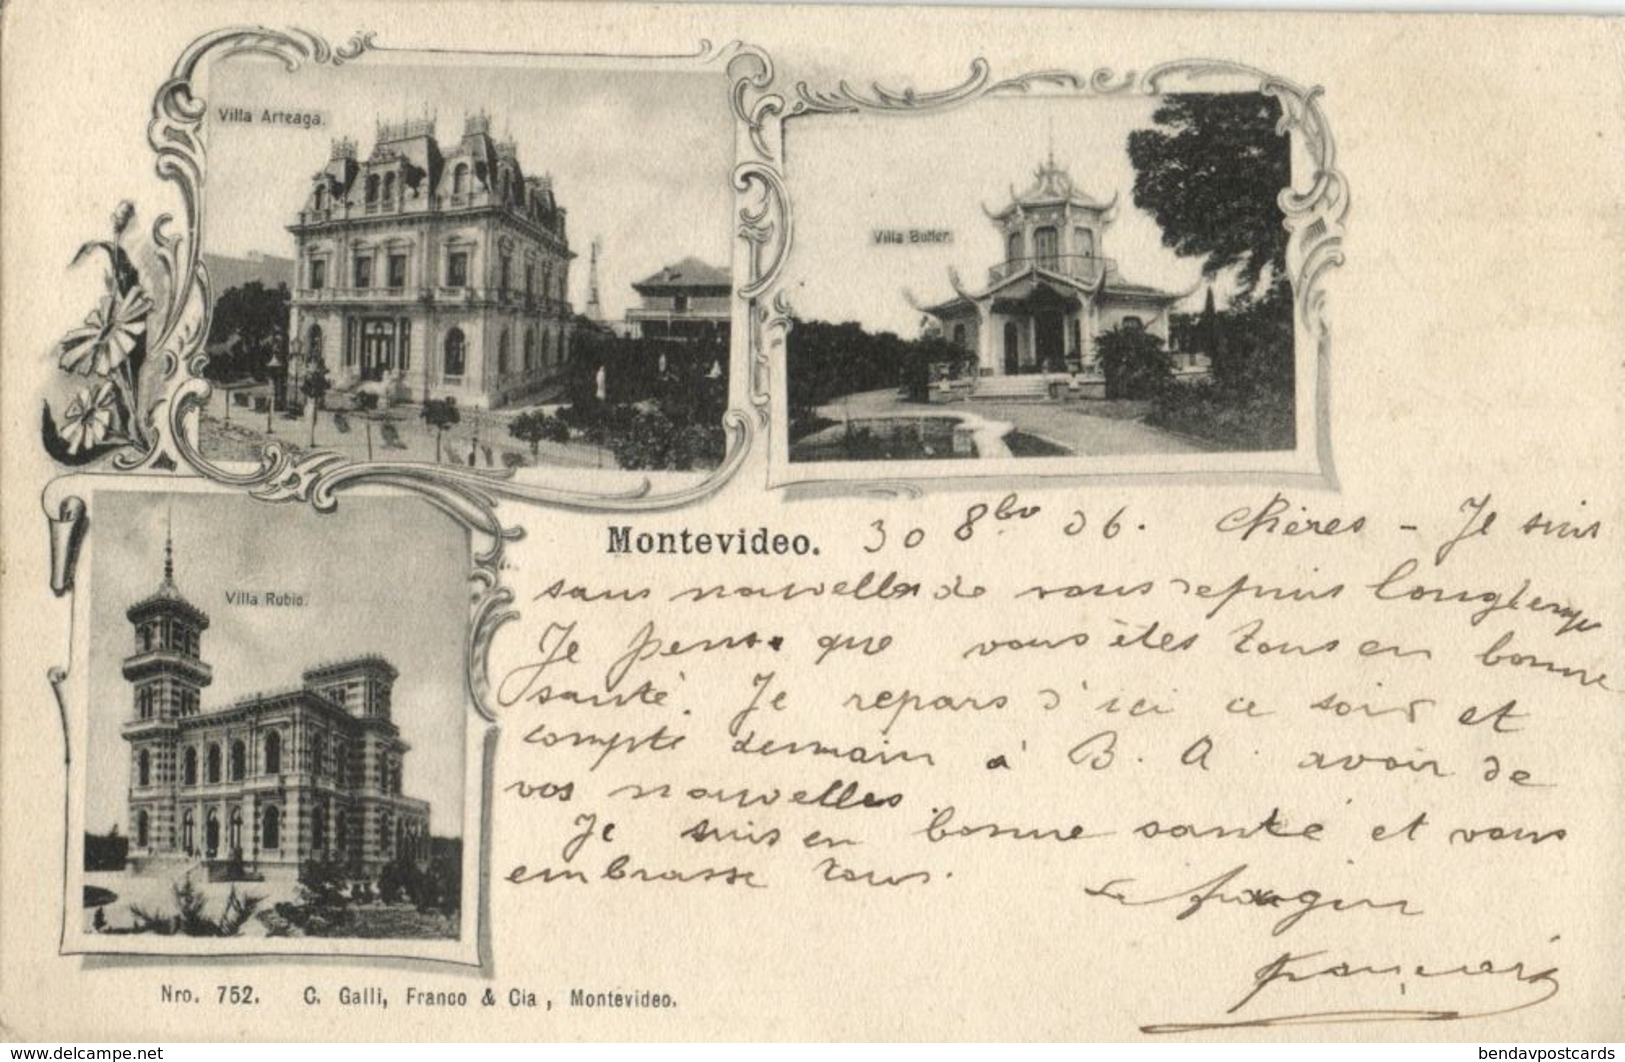 Villa Arteaga.
Villa Butler.
Villa Rubio.
Montevideo. 30 8bre 06. Chères - Je suis
sans nouvelles de vous depuis longtemps
Je pense que vous êtes tous en bonne
santé. Je repars d'ici ce soir et
compte demain à B. A. avoir de
vos nouvelles.
Je suis en bonne santé et vous
embrasse tous.
Le
Nro. 752. C. Galli, Franco & Cia, Montevideo.
www.delcampe.net
bendavpostcards